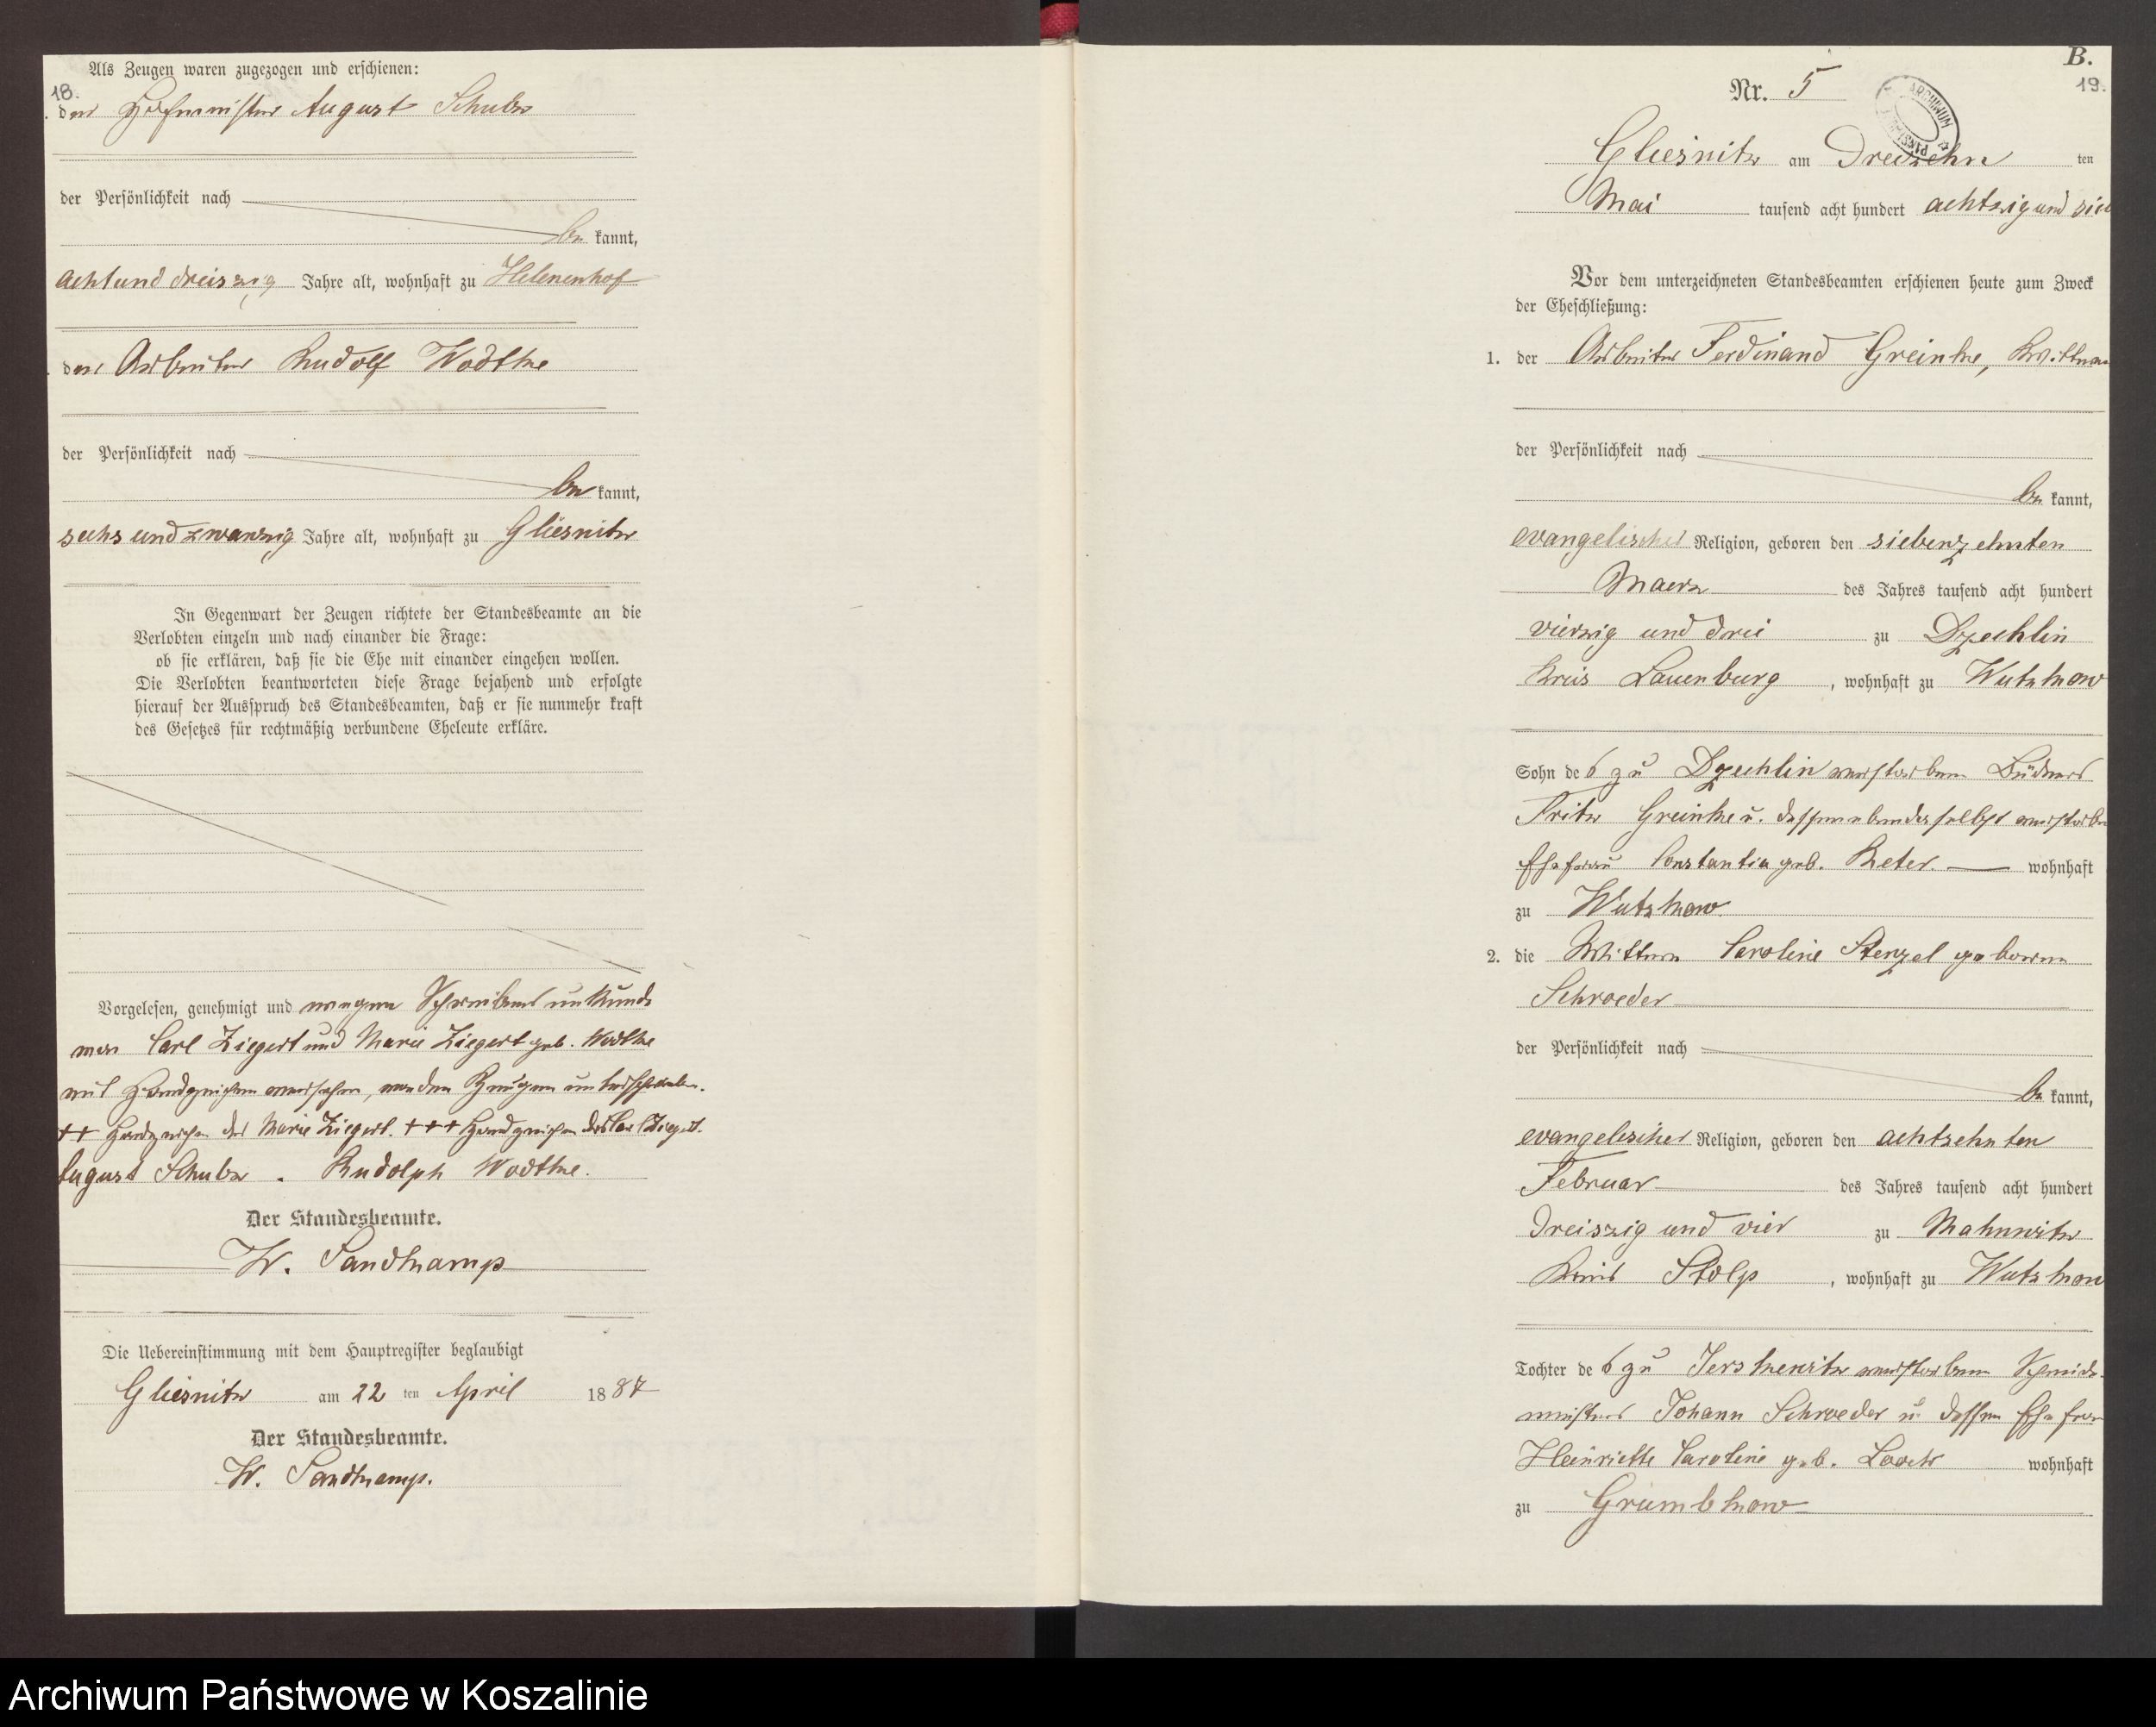 Als Zeugen waren zugezogen und erschienen:
18.
der Hofmeister August Schulz
der Persönlichkeit nach
be kannt,
achtund dreiszig Jahre alt, wohnhaft zu Helenenhof
der Arbeiter Rudolf Wodtke
der Persönlichkeit nach
be kannt,
sechs und zwanzig Jahre alt, wohnhaft zu Gliesnitz
In Gegenwart der Zeugen richtete der Standesbeamte an die
Verlobten einzeln und nach einander die Frage:
ob sie erklären, daß sie die Ehe mit einander eingehen wollen.
Die Verlobten beantworteten diese Frage bejahend und erfolgte
hierauf der Ausspruch des Standesbeamten, daß er sie nunmehr kraft
des Gesetzes für rechtmäßig verbundene Eheleute erkläre.
Vorgelesen, genehmigt und wegen Schreibens unkunde
von Carl Ziegert und Marie Ziegert geb. Wodtke
mit Handzeichen versehen, von den Zeugen unterschrieben.
++ Handzeichen der Marie Ziegert. +++ Handzeichen des Carl Ziegert.
August Schulz . Rudolph Wodtke.
Der Standesbeamte.
W. Sandkamp
Die Uebereinstimmung mit dem Hauptregister beglaubigt
Gliesnitz am 22 ten April 1887
Der Standesbeamte.
W. Sandkamp.
B.
19.
Nr. 5
ARCHIWUM
Gliesnitz am Dreizehn ten
Mai tausend acht hundert achtzig und sieb
Vor dem unterzeichneten Standesbeamten erschienen heute zum Zweck
der Eheschließung:
1. der Arbeiter Ferdinand Greinke, Wittwer
der Persönlichkeit nach
be kannt,
evangelischer Religion, geboren den siebenzehnten
Maerz des Jahres tausend acht hundert
vierzig und drei zu Dzechlin
Kreis Lauenburg , wohnhaft zu Wutzkow
Sohn des zu Dzechlin verstorbenen Büdners
Fritz Greinke u. dessen ebendaselbst verstorben
Ehefrau Constantia geb. Reter. wohnhaft
zu Wutzkow.
2. die Wittwe Caroline Stenzel geborene
Schroeder
der Persönlichkeit nach
be kannt,
evangelischer Religion, geboren den achtzehnten
Februar des Jahres tausend acht hundert
dreiszig und vier zu Mahnwitz
Kreis Stolp , wohnhaft zu Wutzkow
Tochter des zu Jerskewitz verstorbenen Schmiede
meisters Johann Schroeder u. dessen Ehefrau
Heinriette Caroline geb. wohnhaft
zu Grumbkow
Archiwum Państwowe w Koszalinie